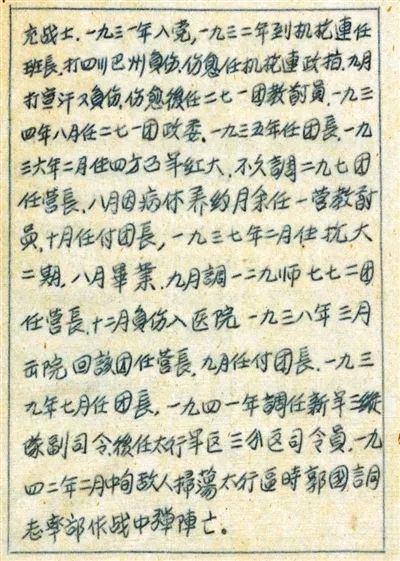 充战士.一九三一年入党,一九三二年到机枪連任
班長,打四川巴州負伤,伤愈任机枪連政指.九月
打宣汗又負伤,伤愈後任二七一团教育員.一九三
四年八月任二七一团政委.一九三五年任团長.一九
三六年二月住四方面军红大,不久調二九七团
任营長.八月因病休养约月余任一营教育
員,十月任付团長,一九三七年二月住抗大
二期.八月畢業.九月調一二九师七七二团
任营長.十二月負伤入医院 一九三八年三月
出院 回該团任营長.九月任付团長.一九三
九年七月任团長,一九四一年調任新军三縱
隊副司令.後任太行军区三分区司令員.一九
四二年二月中旬敌人掃蕩太行區時郭國言同
志率部作战中彈陣亡。